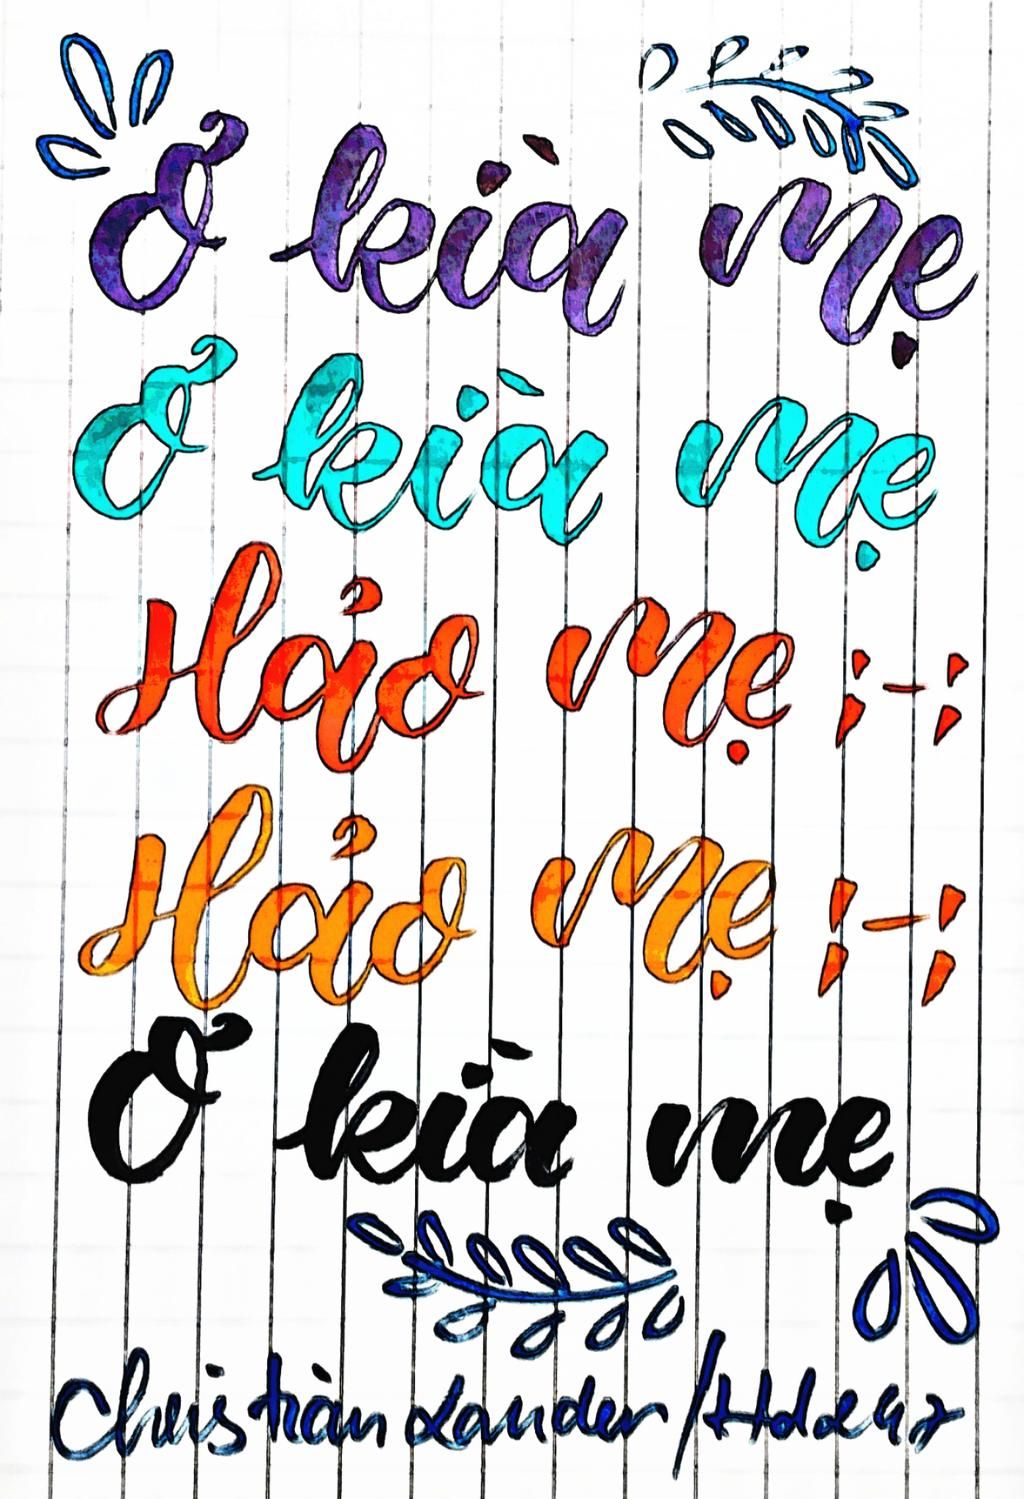 Ơ kìa mẹ
Ơ kìa mẹ
Hảo mẹ ;-;
Hảo mẹ ;-;
Ơ kìa mẹ
Christiàn Lander /